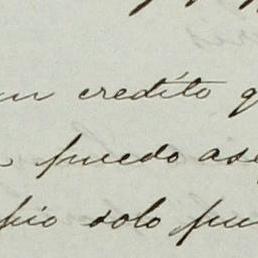 un credíto q
puedo ase
pio solo pu